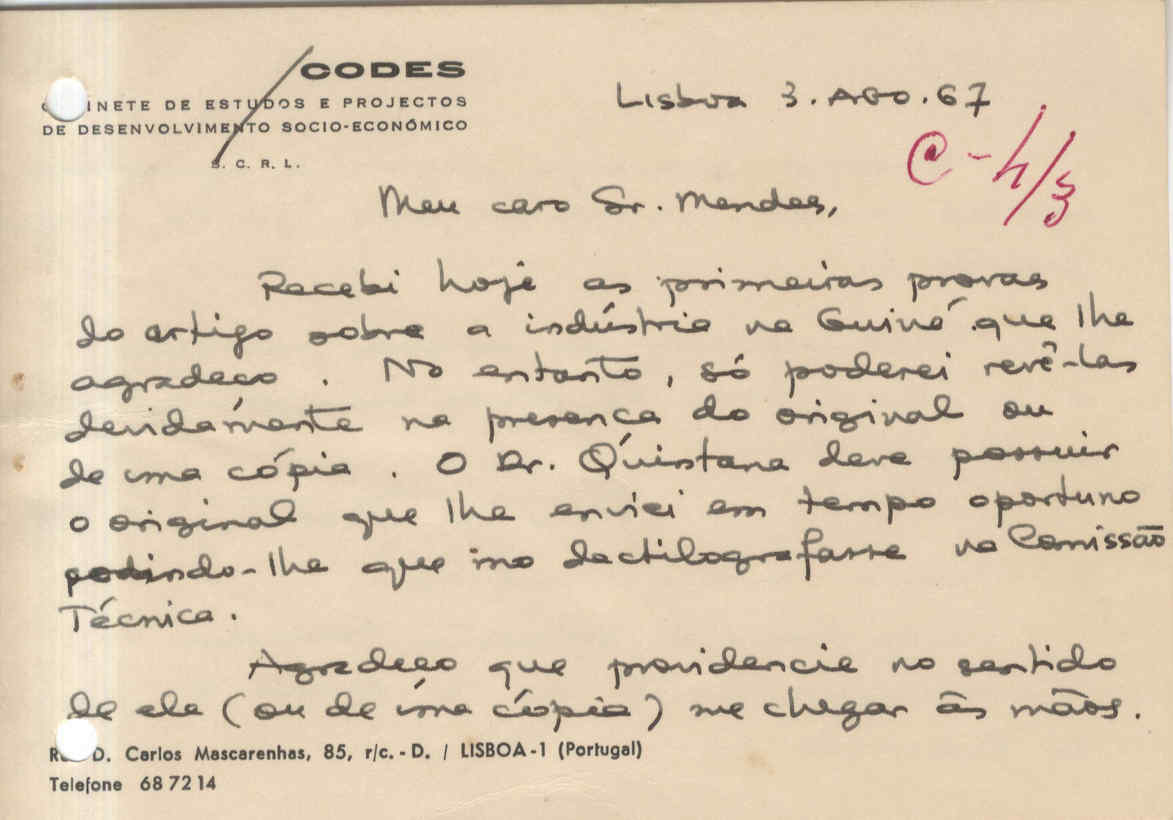 CODES
GABINETE DE ESTUDOS E PROJECTOS
DE DESENVOLVIMENTO SOCIO-ECONÓMICO
S. C. R. L.
Lisboa 3. AGO. 67
C-4/3
Meu caro Sr. Mendes,
Recebi hoje as primeiras provas
do artigo sobre a indústria na Guiné que lhe
agradeço. No entanto, só poderei revê-las
devidamente na presença do original ou
de uma cópia. O Dr. Quintana deve possuir
o original que lhe enviei em tempo oportuno
pedindo-lhe que mo dactilografasse na Comissão
Técnica.
Agradeço que providencie no sentido
de ele (ou de uma cópia) me chegar às mãos.
R. D. Carlos Mascarenhas, 85, r/c. - D. / LISBOA-1 (Portugal)
Telefone 68 72 14